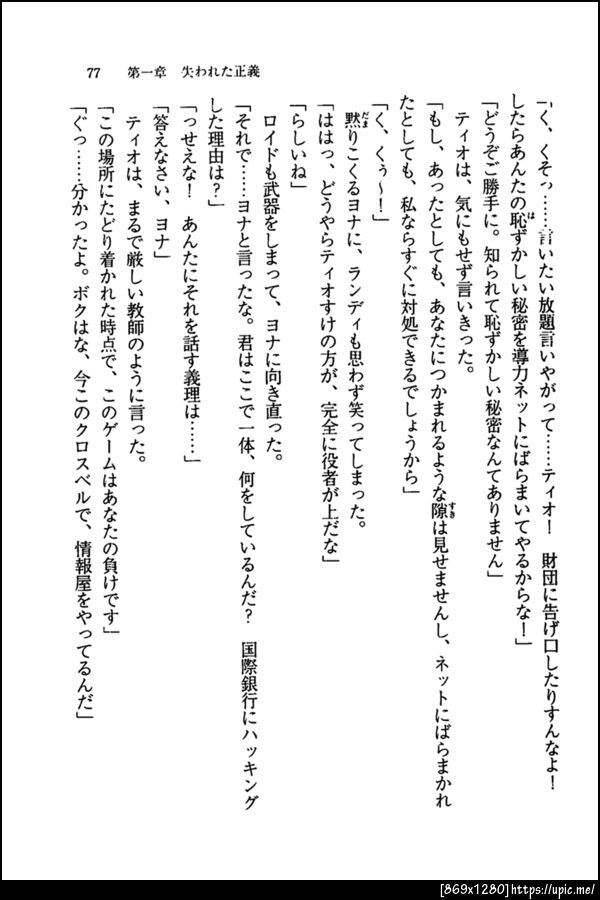 77　第一章　失われた正義
「く、くそっ……言いたい放題言いやがって……ティオ！　財団に告げ口したりすんなよ！
したらあんたの恥ずかしい秘密を導力ネットにばらまいてやるからな！」
「どうぞご勝手に。知られて恥ずかしい秘密なんてありません」
ティオは、気にもせず言いきった。
「もし、あったとしても、あなたにつかまれるような隙は見せませんし、ネットにばらまかれ
たとしても、私ならすぐに対処できるでしょうから」
「く、くぅ～！」
黙りこくるヨナに、ランディも思わず笑ってしまった。
「ははっ、どうやらティオすけの方が、完全に役者が上だな」
「らしいね」
ロイドも武器をしまって、ヨナに向き直った。
「それで……ヨナと言ったな。君はここで一体、何をしているんだ？　国際銀行にハッキング
した理由は？」
「っせえな！　あんたにそれを話す義理は……」
「答えなさい、ヨナ」
ティオは、まるで厳しい教師のように言った。
「この場所にたどり着かれた時点で、このゲームはあなたの負けです」
「ぐっ……分かったよ。ボクはな、今このクロスベルで、情報屋をやってるんだ」
[869x1280]https://upic.me/